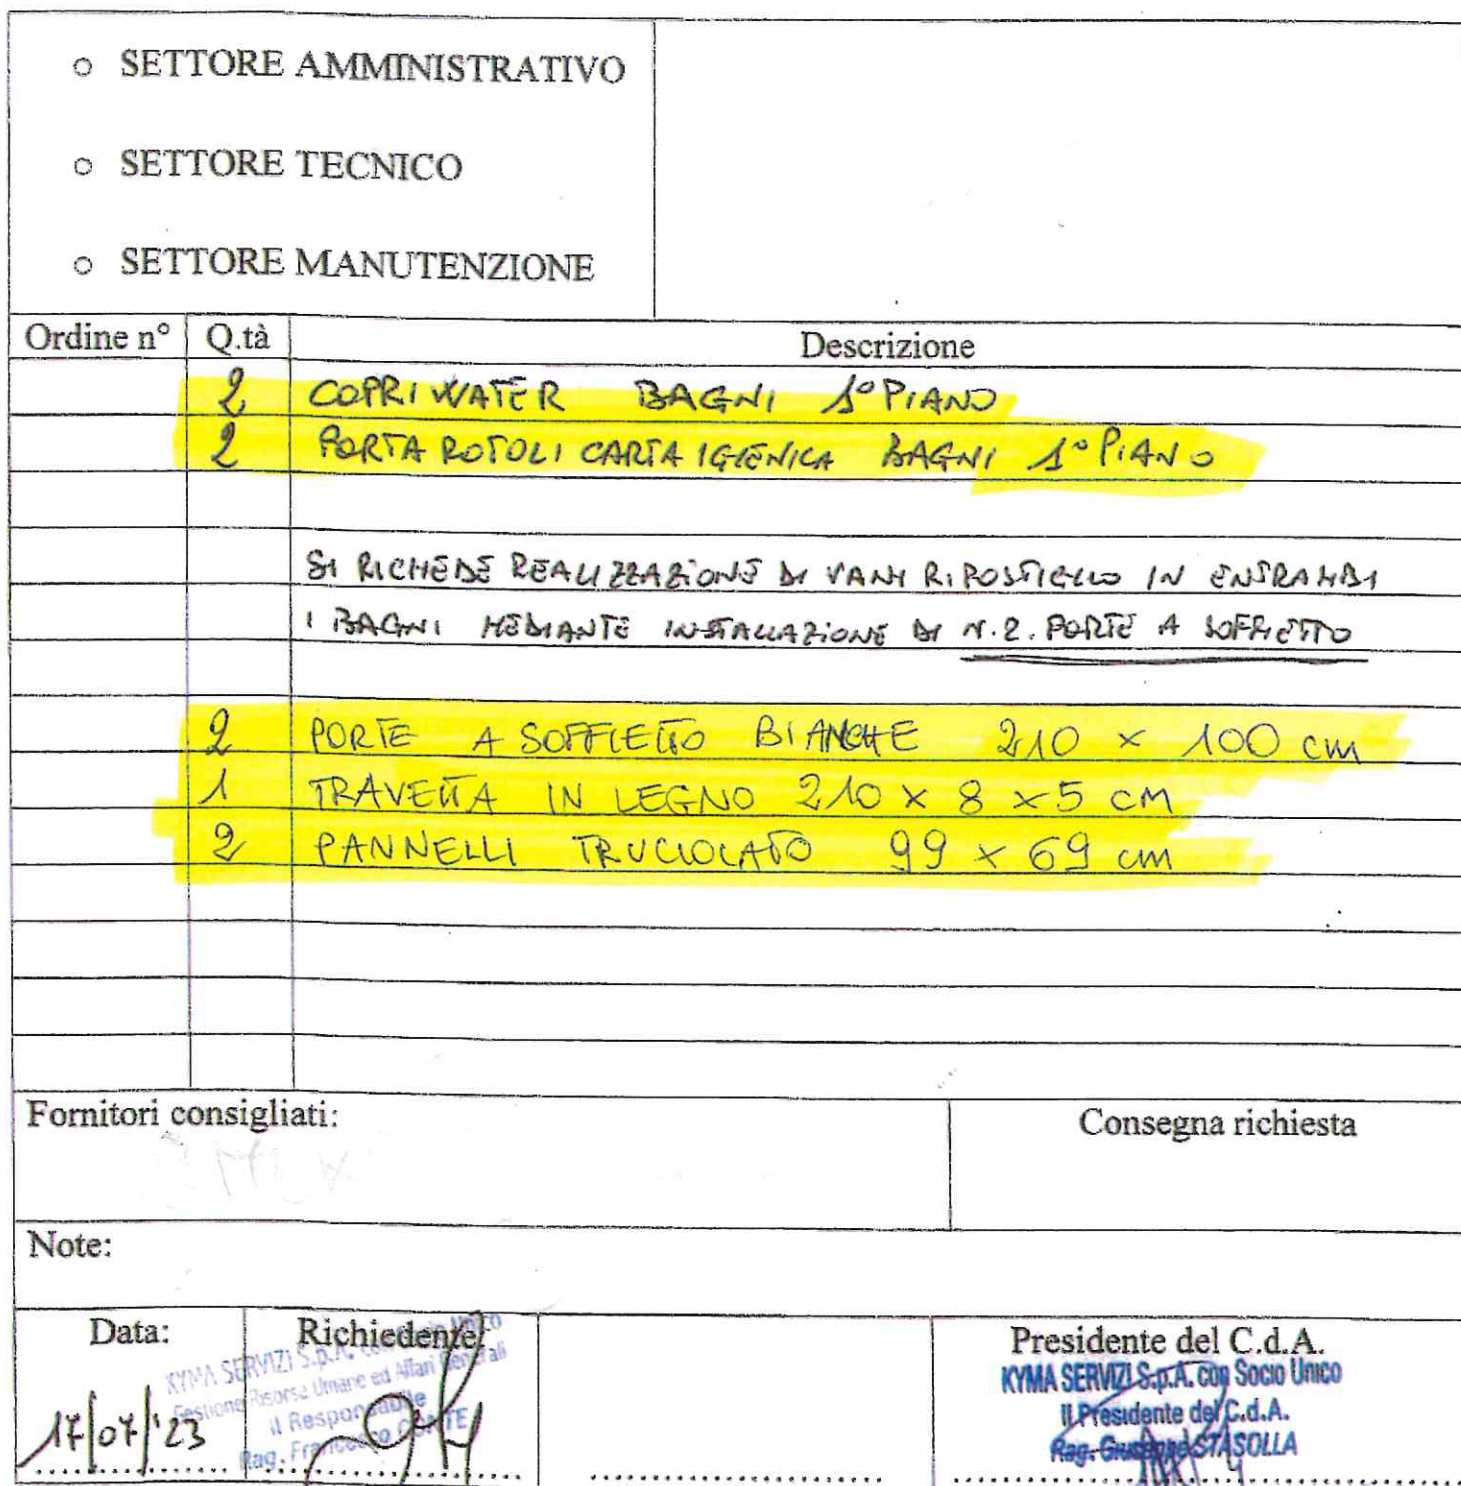 ○ SETTORE AMMINISTRATIVO
○ SETTORE TECNICO
○ SETTORE MANUTENZIONE
Ordine n° Q.tà Descrizione
2 COPRIWATER BAGNI 1° PIANO
2 PORTA ROTOLI CARTA IGIENICA BAGNI 1° PIANO
SI RICHIEDE REALIZZAZIONE DI VANI RIPOSTIGLIO IN ENTRAMBI
I BAGNI MEDIANTE INSTALLAZIONE DI N.2. PORTE A SOFFIETTO
2 PORTE A SOFFIETTO BIANCHE 210 x 100 cm
1 TRAVETTA IN LEGNO 210 x 8 x 5 cm
2 PANNELLI TRUCIOLATO 99 x 69 cm
Fornitori consigliati: Consegna richiesta
Note:
Data: Richiedente: Presidente del C.d.A.
KYMA SERVIZI S.p.A. con Socio Unico
Gestione Risorse Umane ed Affari Generali
Il Responsabile
Rag. Francesco CONTE
17/07/'23
KYMA SERVIZI S.p.A. con Socio Unico
Il Presidente del C.d.A.
Rag. Giuseppe STASOLLA